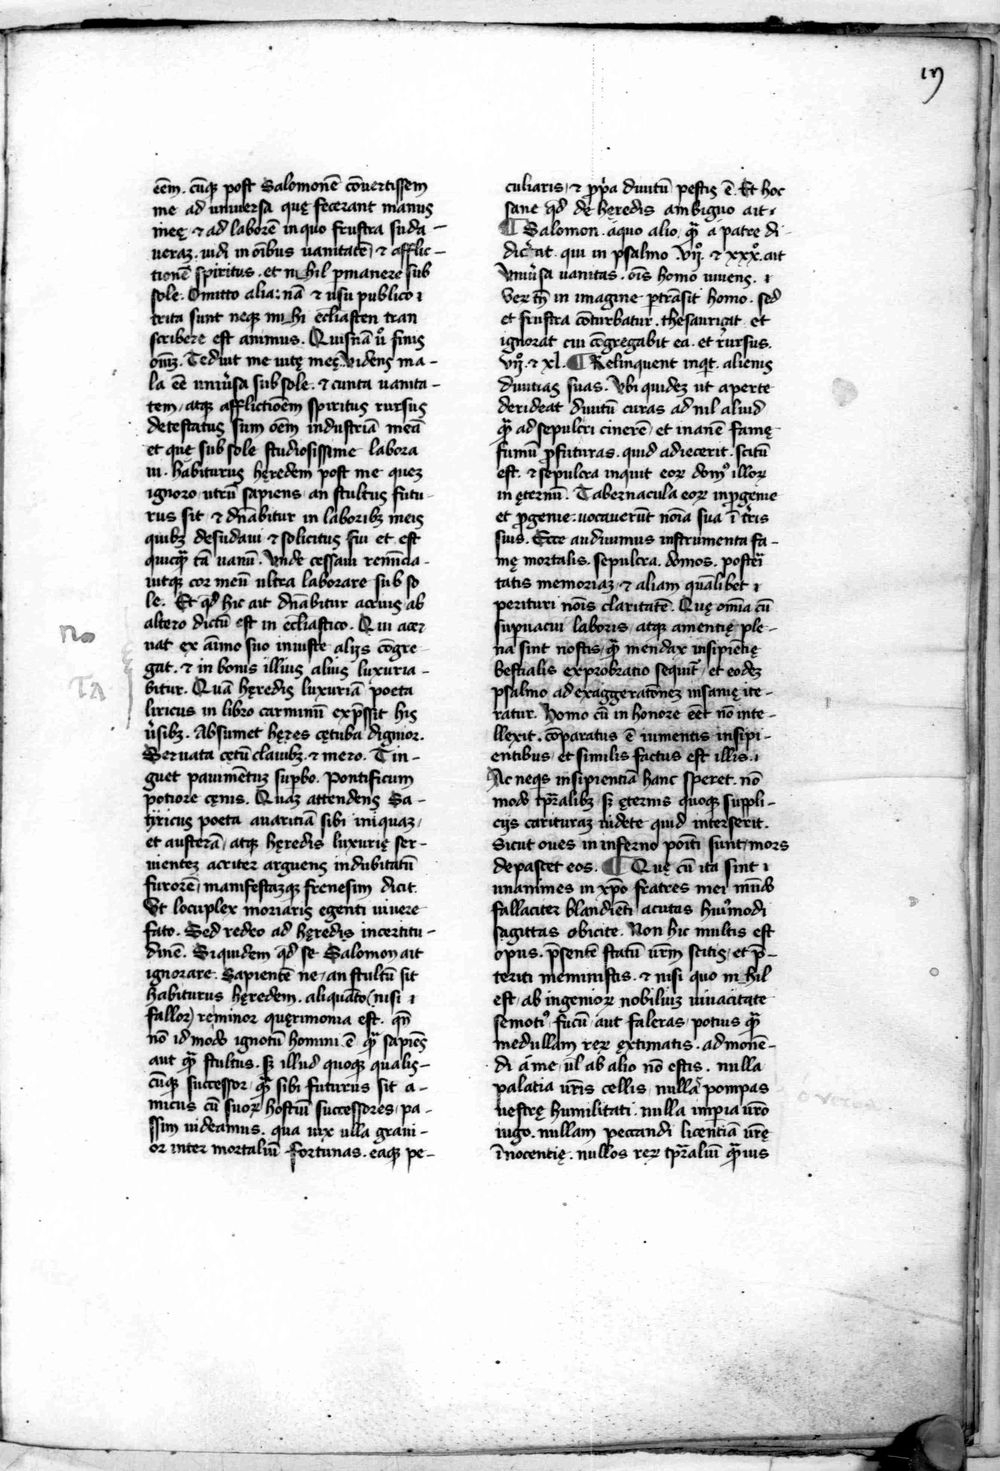 in
eēm. cūqꝫ post Salomonē cōuertissem
me ad uniuersa quę fecerant manus
meę ⁊ ad laborē in quo frustra suda-
ueraꝫ. uidi in oībus uanitatē, ⁊ afflic-
tionē spiritus. et nihil ꝑmanere sub
sole. Omitto alia: nā ⁊ usu publico
trita sunt neqꝫ mihi eccłiasten tran
scribere est animus. Quisnā ůͦ finis
oīuꝫ. Teduit me uitę meę. Uidens ma-
la eē uniůsa sub sole. ⁊ cuncta uanita-
tem, atqꝫ afflictioēm spiritus rursus
detestatus sum oēm industriā meā
et que sub sole studiosissime labora
ui. habiturus hęredem post me queꝫ
ignoro, utrū sapiens, an stultus futu-
rus sit, ⁊ dn̄abitur in laboribꝫ meis
quibꝫ desudaui ⁊ solicitus fui et est
quicꝗ̄ tā uanū. Unde cessaui renūcia-
uitqꝫ cor meū ultra laborare sub so
le. Et qđ hic ait dn̄abitur acrius ab
altero dictū est in eccłiastico. Qui acer
uat ex aīmo suo iniuste alijs cōgre-
gat. ⁊ in bonis illius alius luxuria-
bitur. Quā hęredis luxuriā poeta
liricus in libro carminū exp̄ssit his
ůsibꝫ. Absumet hęres cętuba dignior.
Seruata cętū clauibꝫ ⁊ mero. Tin-
guet pauimētuꝫ suꝑbo. pontificum
potiore cęnis. Quaꝫ attendens Sa-
tyricus poeta auaritiā sibi iniquaꝫ,
et austerā, atqꝫ hęredis luxurię ser-
uienteꝫ acriter arguens indubitatū
furorē, manifestaꝫqꝫ frenesim dicit.
Ut locuplex moriaris egenti uiuere
fato. Sed redeo ad hęredis incertitu-
dinē. Siquidem qđ se Salomon ait
ignorare. Sapientē ne, an stultū sit
habiturus hęredem. aliquāto (nisi
fallor) reminor quęrimonia est. qn̄
nō id modo ignotū homini ē ꝗ̄ sapiēs
aut ꝗ̄ stultus. sꝫ illud quoqꝫ qualis-
cūqꝫ successor, ꝗ̄ sibi futurus sit a-
micus cū suoꝝ hostiū successores, pa-
ssim uideamus. qua uix ulla graui-
or inter mortaliū fortunas. eaqꝫ pe-
culiaris, ⁊ ꝓp̄a diuitū pestis ē. Et hoc
sane qđ de hęredis ambiguo ait,
¶ Salomon. a quo alio, ꝗ̄ a patre di-
dicerat. qui in psalmo .Vij. ⁊ xxxͦ. ait
Uniůsa uanitas. oīs homo uiuens.
Ver t̄n in imagine ꝑtrāsit homo. sed
et frustra cōturbatur. thesauriꝫat et
ignorat cui cōgregabit ea. et rursus.
Vijͦ. ⁊ xl. ¶ Relinquent inqt. alienis
diuitias suas. Ubi quideꝫ ut aperte
derideat diuitū curas ad nil aliud
ꝗ̄ ad sepulcri cinerē, et inanē famę
fumū ꝓfuturas. quid adiecerit. scitū
est. ⁊ sepulcra inquit eoꝝ domꝰ illoꝝ
in ęternū. Tabernacula eoꝝ in ꝓgenie
et ꝓgenie: uocauerūt noīa sua ī t̄ris
suis. Ecce audiuimus instrumenta fa-
mę mortalis. sepulcra. domos. posteri
tatis memoriaꝫ, ⁊ aliam quālibet
perituri noīs claritatē. Quę omīa cū
suꝑuacui laboris, atqꝫ amentię ple-
na sint nostis, ꝗ̄ mendax insipientię
bestialis exprobratio sequit᷑, et eodeꝫ
psalmo ad exaggeratōneꝫ insanię ite-
ratur. Homo cū in honore eēt nō inte-
llexit. cōparatus ē iumentis insipi-
entibus, et similis factus est illis.
Ac neqs insipientiā hanc speret. nō
modo tꝑalibꝫ sꝫ ęternis quoqꝫ suppli-
cijs carituraꝫ uidete quid interserit.
Sicut oues in inferno poīti sunt, mors
depascet eos. ¶ Quę cū ita sint
unanimes in xp̄o fratres mei mūdo
fallaciter blandiēti acutas huiꝰmodi
sagittas obicite. Non hic multis est
opus. p̄sentē statū ur̄m scitis, et p̄-
teriti meministis. ⁊ nisi quo nihil
est, ab ingenioꝝ nobiliuꝫ uiuacitate
semotiꝰ, fucū, aut faleras, potius ꝗ̄
medullam reꝝ extimatis. admonē-
di a me ul̄ ab alio nō estis. nulla
palatia ur̄is cellis, nullā pompas
uestrę humilitati. nulla imꝑia ur̄o
iugo. nullam peccandi licentiā ur̄ę
īnocentię. nullos reꝝ tꝑaliū